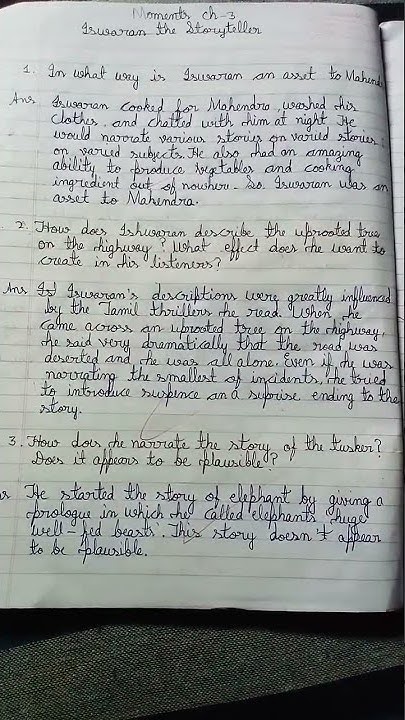 Moments ch-3
Iswaran the Storyteller
1. In what way is Iswaran an asset to Mahend
Ans Iswaran cooked for Mahendra, washed his
clothes, and chatted with him at night. He
would narrate various stories on varied stories
on varied subjects. He also had an amazing
ability to produce vegetables and cooking
ingredient out of nowhere. So. Iswaran was an
asset to Mahendra.
2. How does Ishwaran describe the uprooted tree
on the highway? What effect does he want to
create in his listeners?
Ans Iswaran's descriptions were greatly influenced
by the Tamil thrillers he read. When he
came across an uprooted tree on the highway,
he said very dramatically that the road was
deserted and he was all alone. Even if he was
narrating the smallest of incidents, he tried
to introduce suspence and suprise ending to the
story.
3. How does he narrate the story of the tusker?
Does it appears to be plausible?
s He started the story of elephant by giving a
prologue in which he called elephants 'huge
well-fed beasts'. This story doesn't appear
to be plausible.